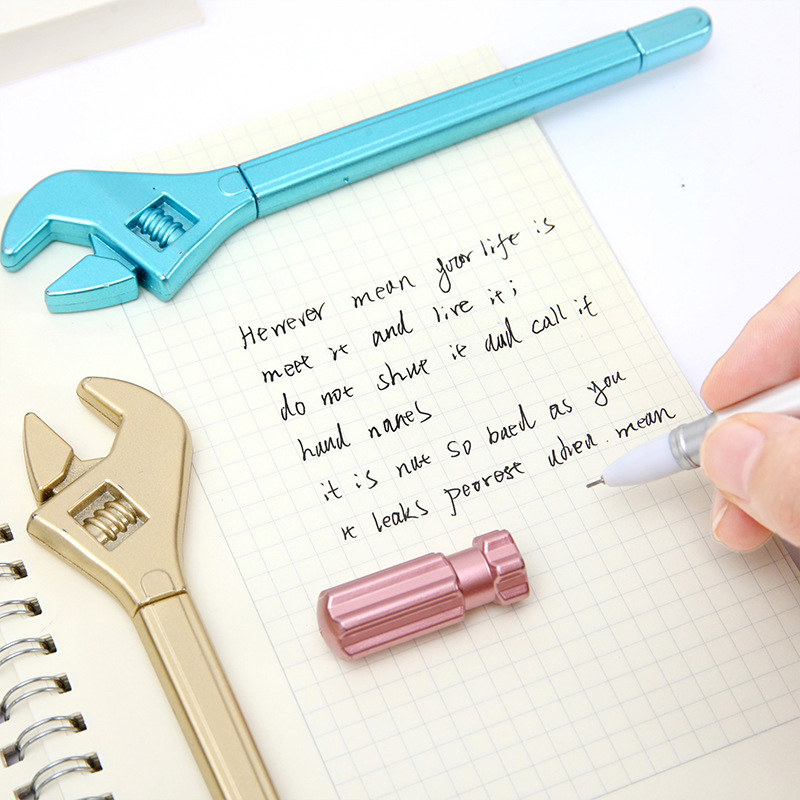 Herrever mean your life is
meet it and live it;
do not shut it and call it
hand nanes
it is not so baed as you
it leaks peorest when mean